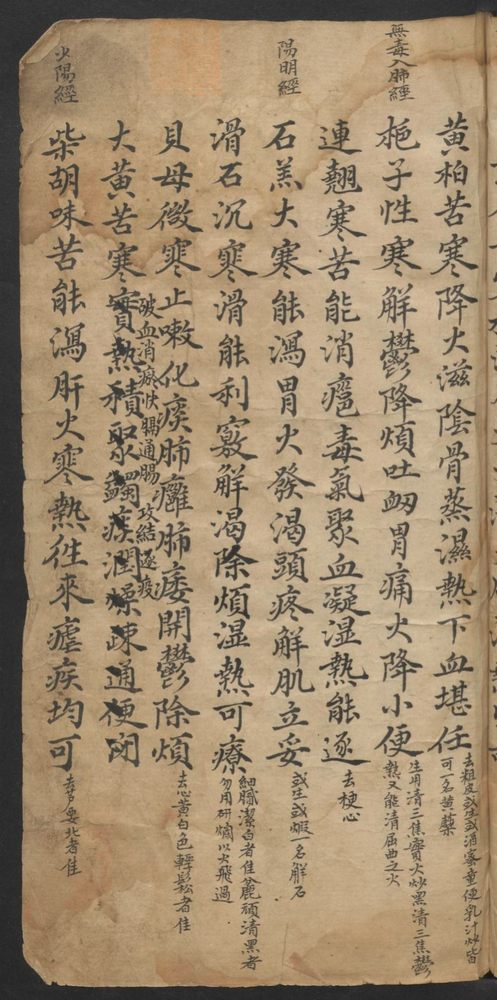 黃柏苦寒降火滋陰骨蒸濕熱下血堪任
去粗皮或生或酒蜜童便乳汁炒皆
可一名黃蘗
無毒入肺經
梔子性寒解鬱降煩吐衂胃痛火降小便
生用清三焦實火炒黑清三焦鬱
熱又能清屈曲之火
連翹寒苦能消癰毒氣聚血凝湿熱能逐
去梗心
陽明經
石羔大寒能瀉胃火發渴頭疼解肌立妥
或生或煆一名解石
滑石沉寒滑能利竅解渴除煩湿熱可療
細膩潔白者佳麄頑清黑者
勿用研爛以火飛過
貝母微寒止嗽化痰肺癰肺痿開鬱除煩
去心黃白色輕鬆者佳
破血消瘀快膈通腸攻結逐疫
大黃苦寒實熱積聚蠲痰潤燥疎通便閉
少陽經
柴胡味苦能瀉肝火寒熱徃來瘧疾均可
去芦要北者佳